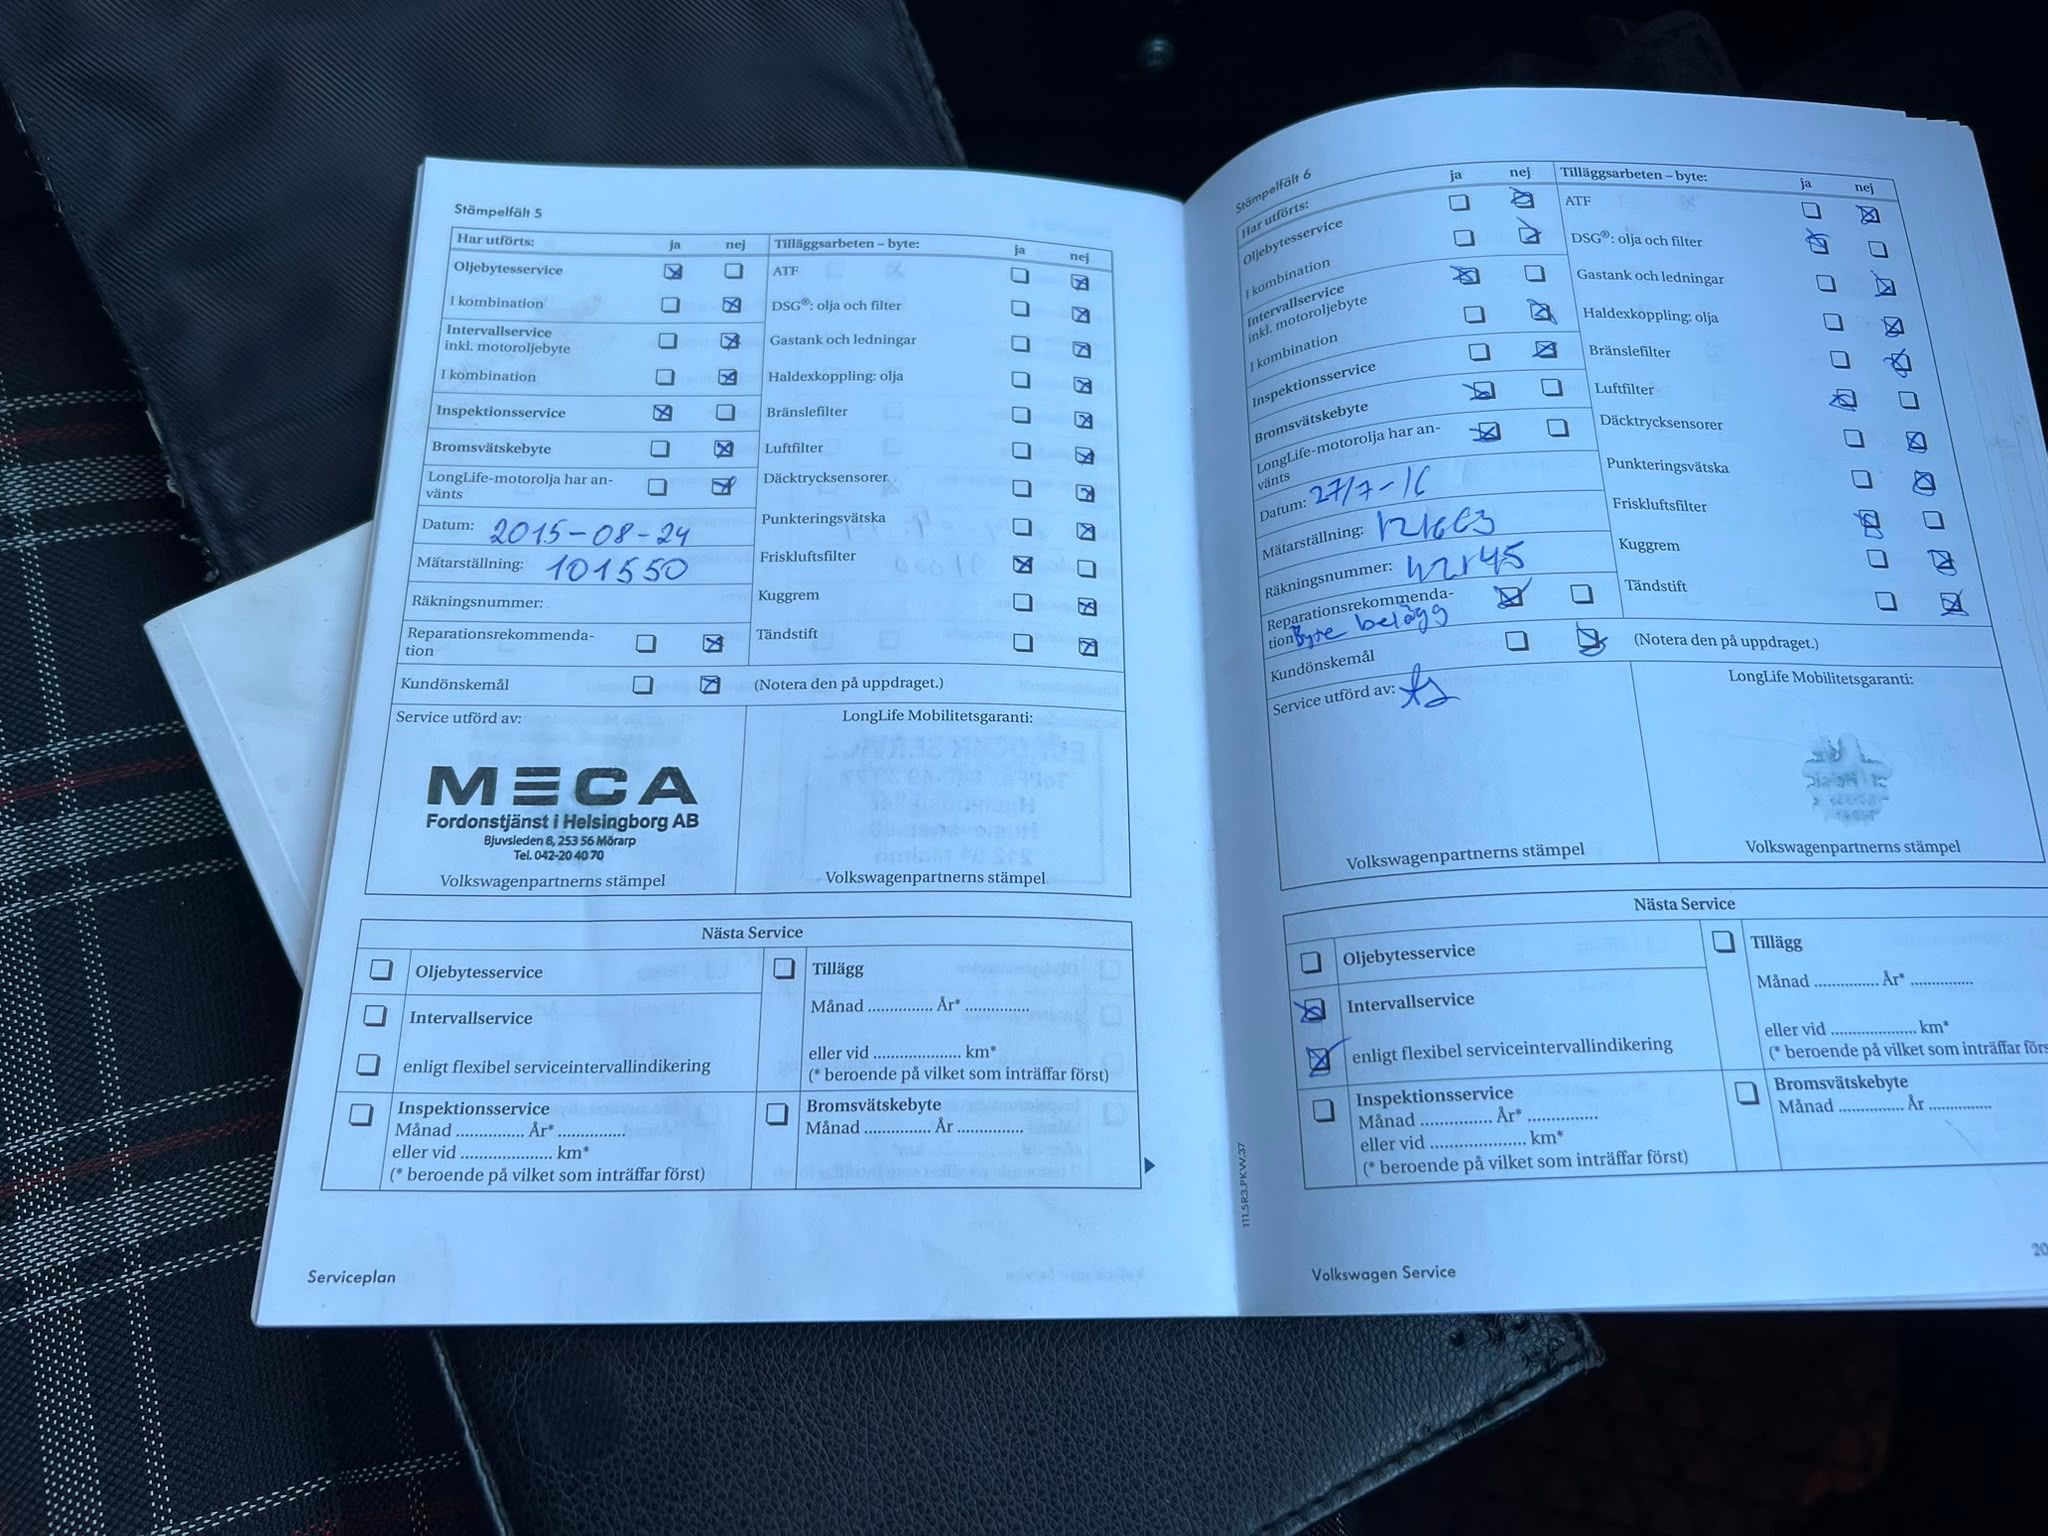 Stämpelfält 5
Har utförts: ja nej
Oljebytesservice
I kombination
Intervallservice
inkl. motoroljebyte
I kombination
Inspektionsservice
Bromsvätskebyte
LongLife-motorolja har an-
vänts
Datum: 2015-08-24
Mätarställning: 101550
Räkningsnummer:
Reparationsrekommenda-
tion
Kundönskemål
Tilläggsarbeten – byte: ja nej
ATF
DSG®: olja och filter
Gastank och ledningar
Haldexkoppling: olja
Bränslefilter
Luftfilter
Däcktrycksensorer
Punkteringsvätska
Friskluftsfilter
Kuggrem
Tändstift
(Notera den på uppdraget.)
Service utförd av:
MECA
Fordonstjänst i Helsingborg AB
Bjuvsleden 8, 253 56 Mörarp
Tel. 042-20 40 70
Volkswagenpartnerns stämpel
LongLife Mobilitetsgaranti:
Volkswagenpartnerns stämpel
Nästa Service
Oljebytesservice
Intervallservice
enligt flexibel serviceintervallindikering
Inspektionsservice
Månad ............... År* ...............
eller vid .................... km*
(* beroende på vilket som inträffar först)
Tillägg
Månad ............... År* ...............
eller vid .................... km*
(* beroende på vilket som inträffar först)
Bromsvätskebyte
Månad ............... År ...............
Serviceplan
Stämpelfält 6
Har utförts: ja nej
Oljebytesservice
I kombination
Intervallservice
inkl. motoroljebyte
I kombination
Inspektionsservice
Bromsvätskebyte
LongLife-motorolja har an-
vänts
Datum: 27/7-16
Mätarställning:
Räkningsnummer:
Reparationsrekommenda-
tion Byte belägg
Kundönskemål
Tilläggsarbeten – byte: ja nej
ATF
DSG®: olja och filter
Gastank och ledningar
Haldexkoppling: olja
Bränslefilter
Luftfilter
Däcktrycksensorer
Punkteringsvätska
Friskluftsfilter
Kuggrem
Tändstift
(Notera den på uppdraget.)
Service utförd av:
Volkswagenpartnerns stämpel
LongLife Mobilitetsgaranti:
Volkswagenpartnerns stämpel
Nästa Service
Oljebytesservice
Intervallservice
enligt flexibel serviceintervallindikering
Inspektionsservice
Månad ............... År* ...............
eller vid .................... km*
(* beroende på vilket som inträffar först)
Tillägg
Månad ............... År* ...............
eller vid .................... km*
(* beroende på vilket som inträffar förs
Bromsvätskebyte
Månad ............... År ...............
111.5R3.PKW.37
Volkswagen Service
20